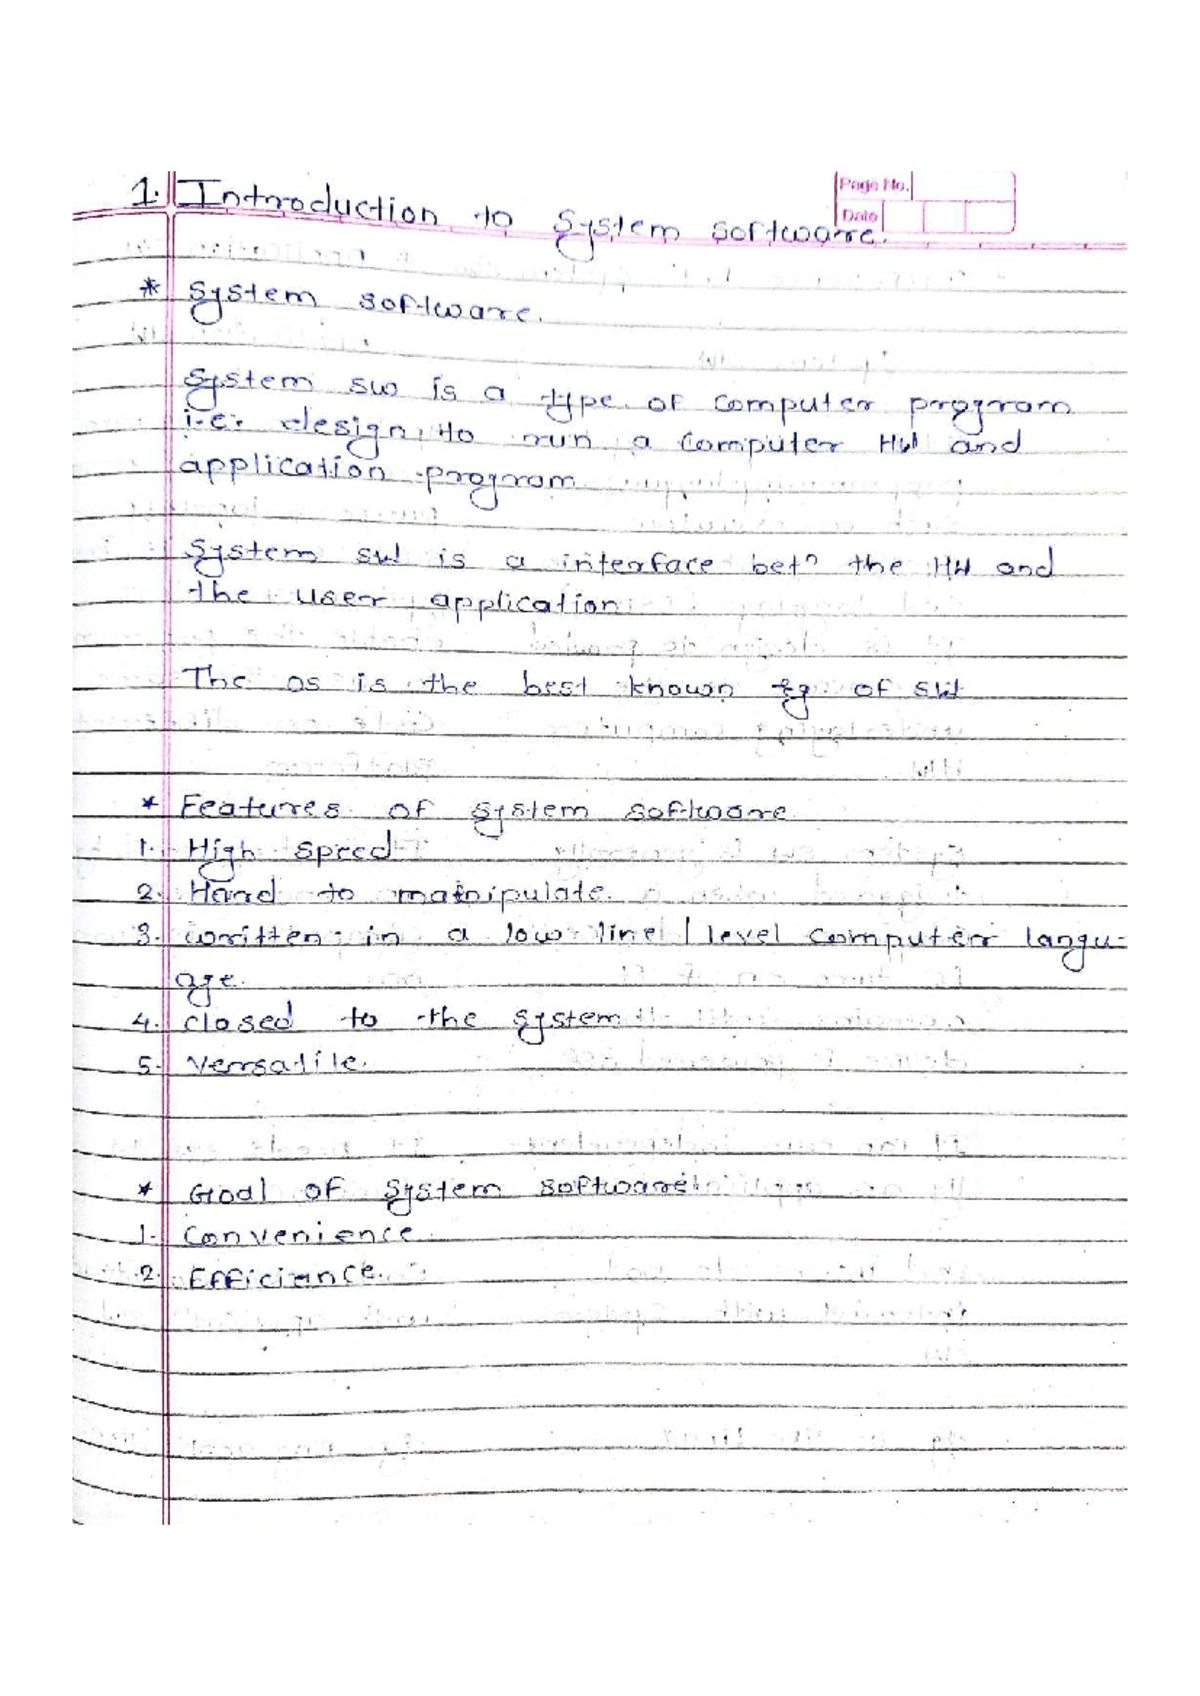 Page No.
Date
1. Introduction to System software.
* System software.
System sw is a type of computer program
i.e. design to run a computer HW and
application program
System sw is a interface betn the HW and
the user application
The os is the best known eg of SW
* Features of system software
1. High speed
2. Hard to manipulate.
3. written in a low line / level computer langu-
age.
4. closed to the system
5. Versatile.
* Goal of system software
1. Convenience
2. Efficiance.